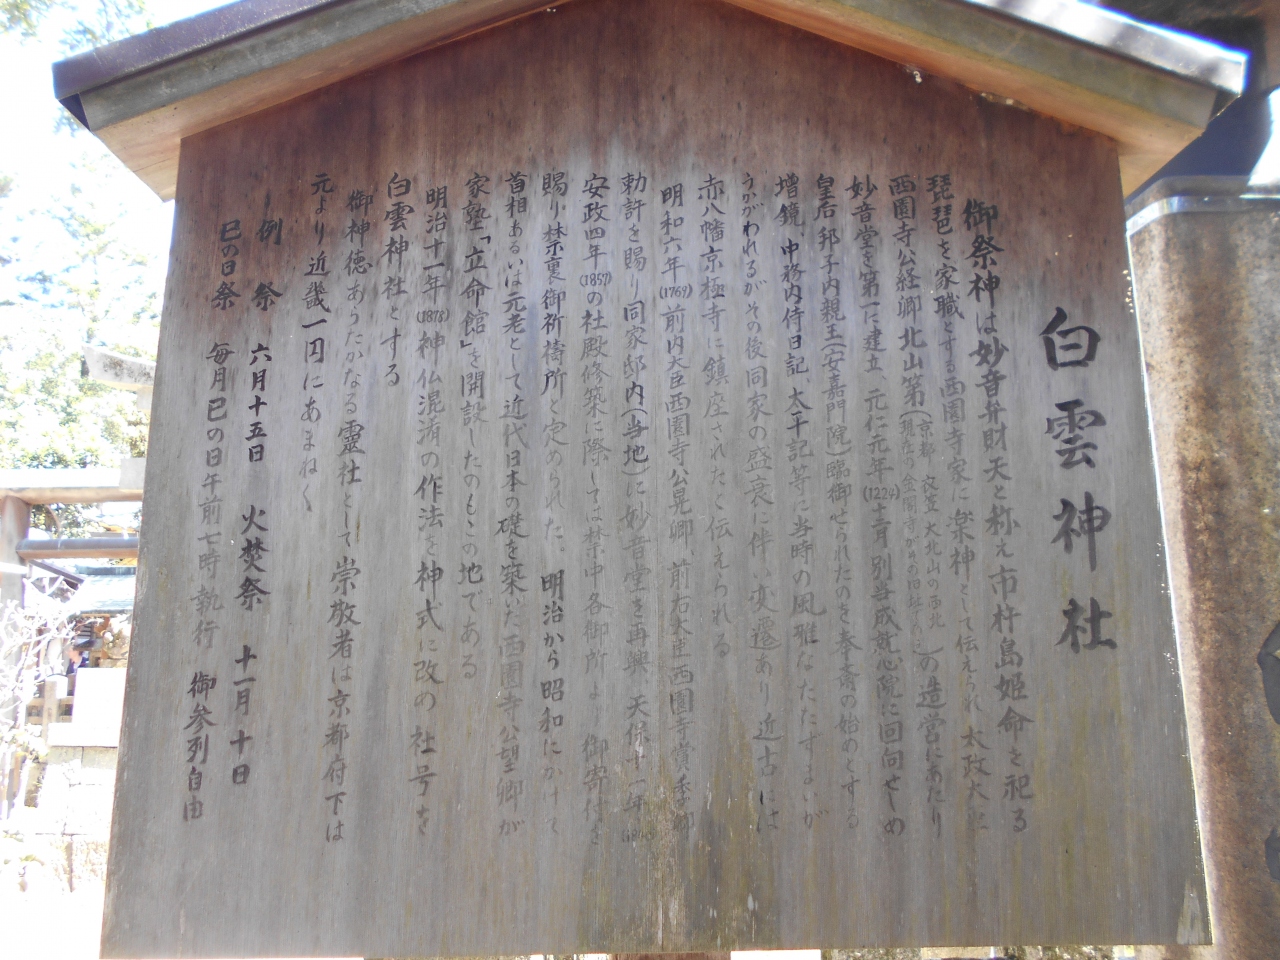 白雲神社
御祭神は妙音弁財天と称え市杵島姫命を祀る
琵琶を家職とする西園寺家に楽神として伝えられ 太政大臣
西園寺公経卿北山第(京都 衣笠 大北山の西北 現在の金閣寺がその旧址)の造営にあたり
妙音堂を第一に建立、元仁元年(1224)十二月別当成就心院に回向せしめ
皇后邦子内親王(安嘉門院)臨御せられたのを奉斎の始めとする
増鏡、中務内侍日記、太平記等に当時の風雅なたたずまいが
うかがわれるがその後同家の盛衰に伴い変遷あり近古には
赤八幡京極寺に鎮座されたと伝えられる
明和六年(1769)前内大臣西園寺公晃卿、前右大臣西園寺賞季卿
勅許を賜り同家邸内(当地)に妙音堂を再興、天保十一年
安政四年(1857)の社殿修築に際しては禁中各御所より御寄付を
賜り、禁裏御祈祷所と定められた。 明治から昭和にかけて
首相あるいは元老として近代日本の礎を築いた西園寺公望卿が
家塾「立命館」を開設したのもこの地である。
明治十一年(1878)神仏混淆の作法を神式に改め 社号を
白雲神社とする
御神徳あらたかなる靈社として崇敬者は京都府下は
元より近畿一円にあまねく
一例 祭 六月十五日 火焚祭 十一月十日
巳の日祭 毎月巳の日午前七時執行 御参列自由